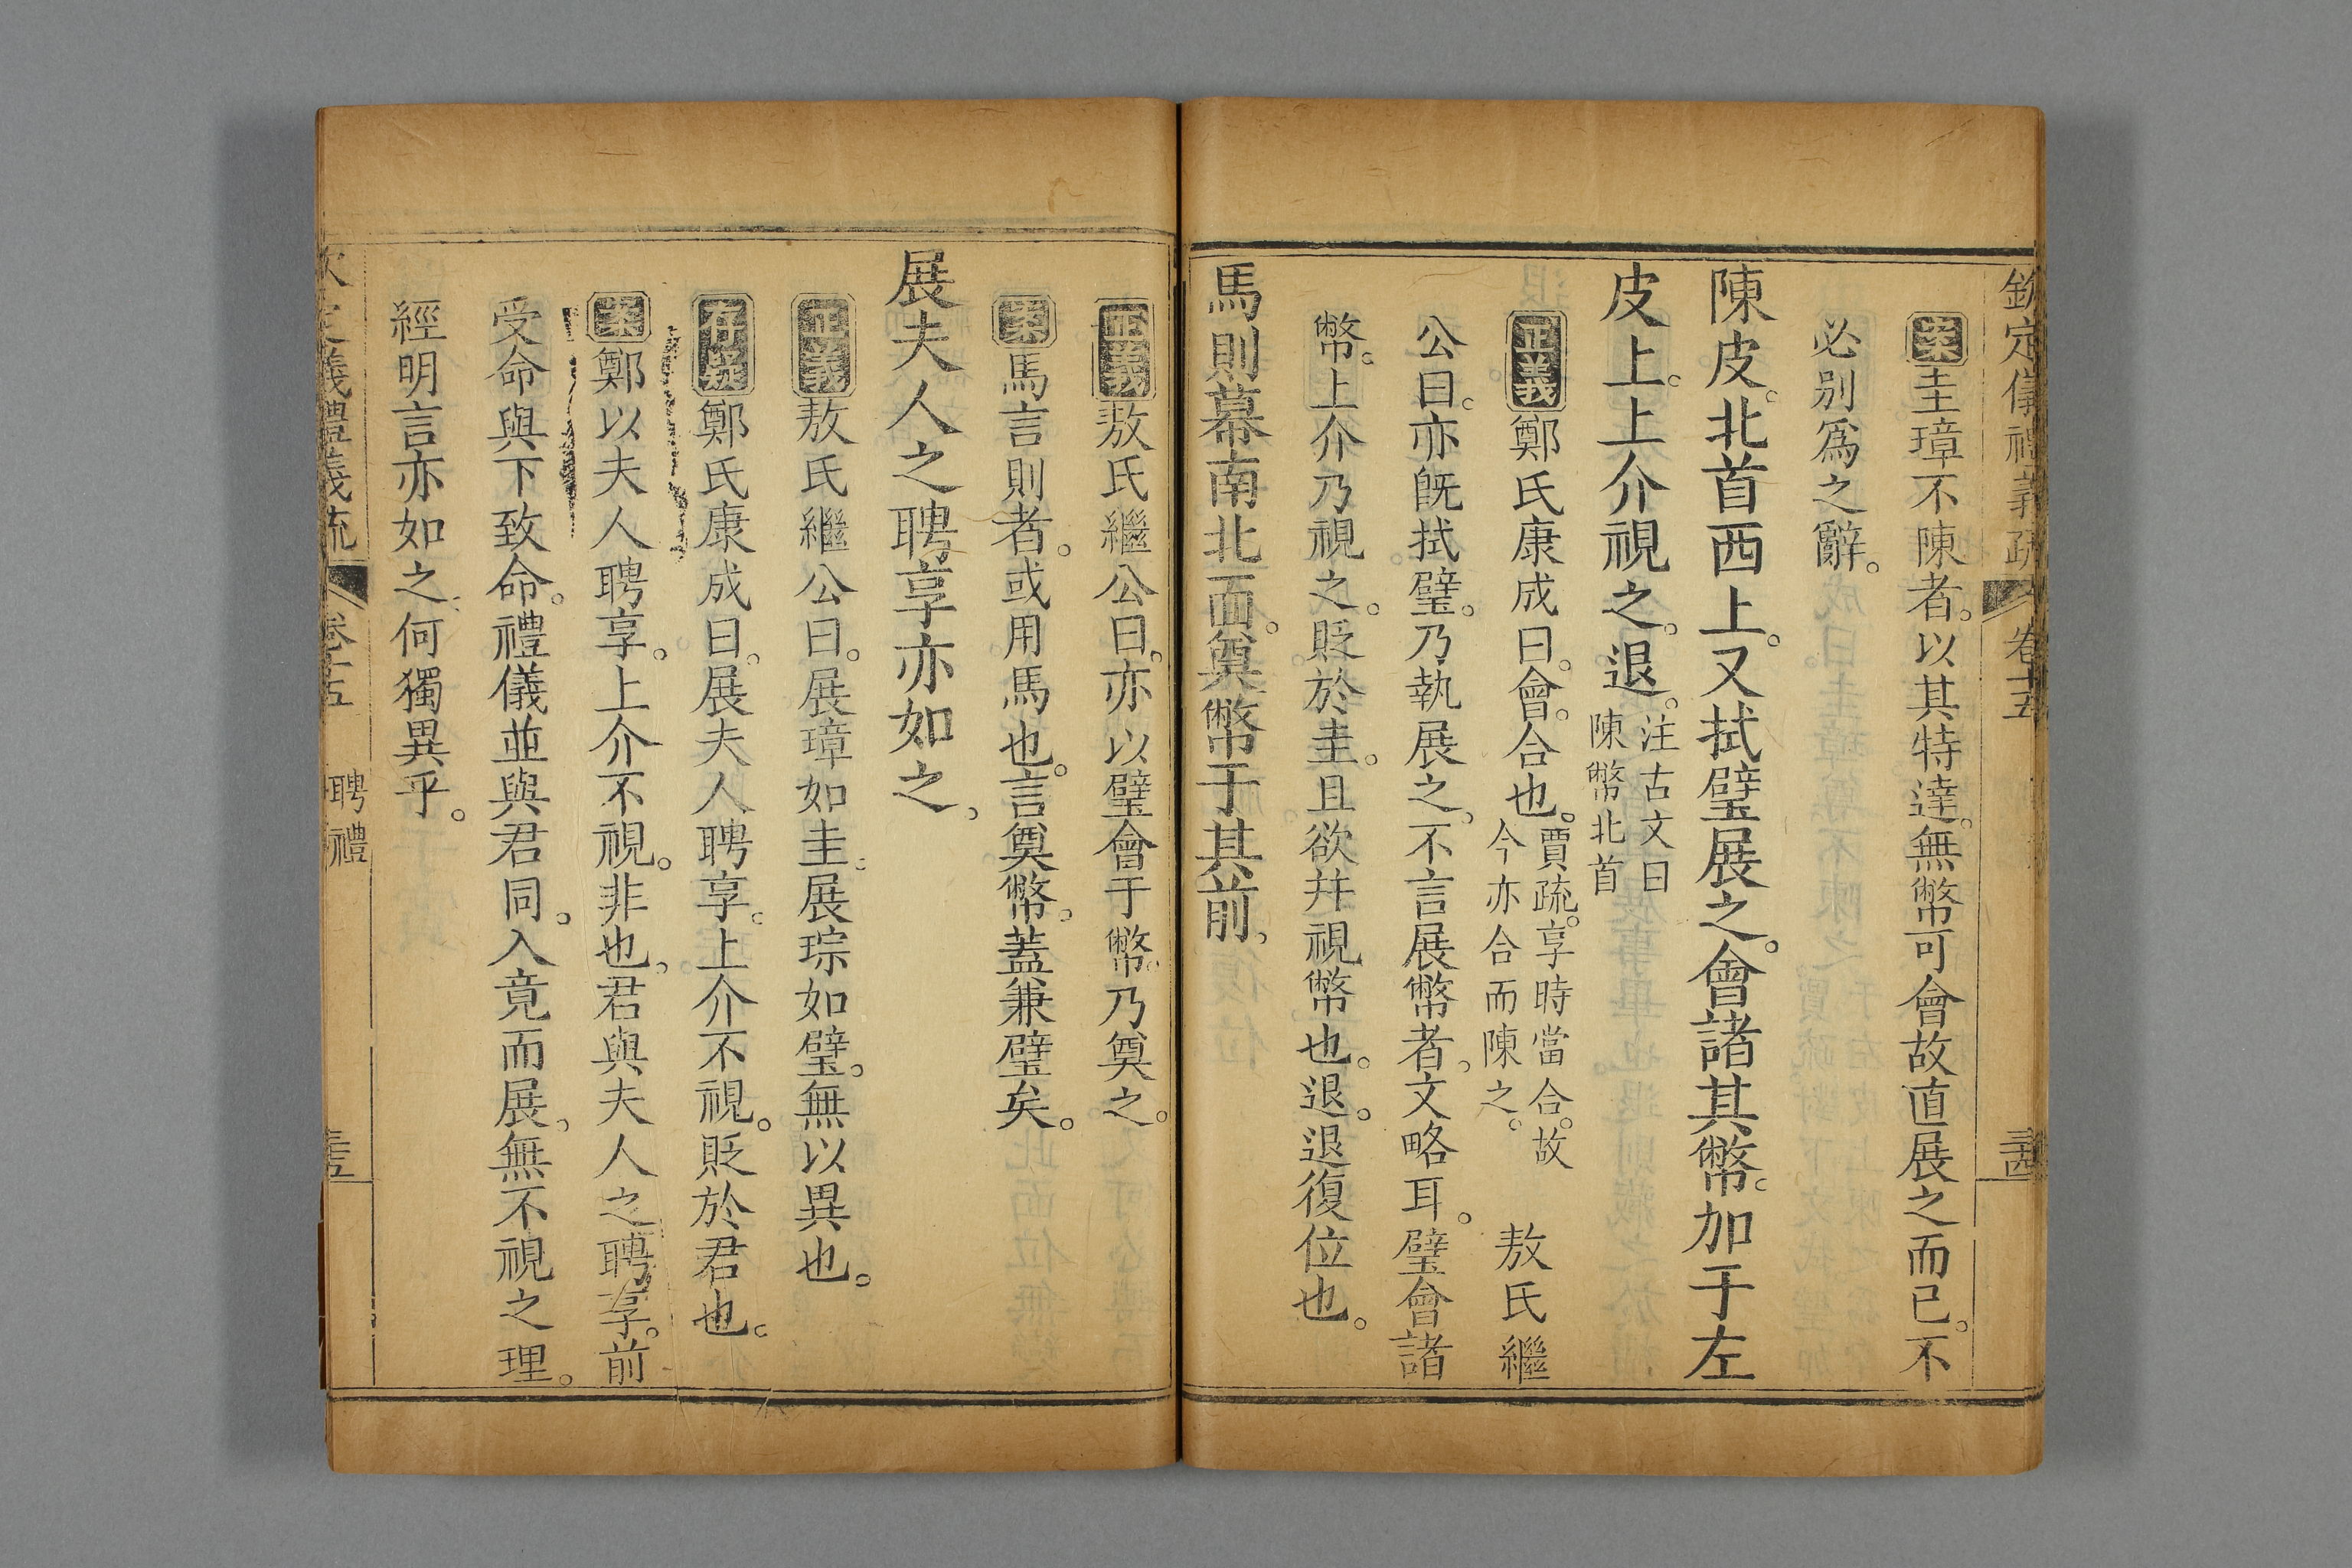 欽定儀禮義疏 卷十五
案圭璋不陳者。以其特達。無幣可會故直展之而已。不
必別爲之辭。
陳皮。北首西上。又拭璧展之。會諸其幣。加于左
皮上。上介視之。退。注古文曰
陳幣北首
正義鄭氏康成曰。會。合也。賈疏。享時當合。故
今亦合而陳之。敖氏繼
公曰。亦旣拭璧。乃執展之。不言展幣者。文略耳。璧會諸
幣。上介乃視之。貶於圭。且欲幷視幣也。退。退復位也。
馬則幕南北面。奠幣于其前。
正義敖氏繼公曰。亦以璧會于幣。乃奠之。
案馬言則者。或用馬也。言奠幣。蓋兼璧矣。
展夫人之聘享亦如之。
正義敖氏繼公曰。展璋如圭。展琮如璧。無以異也。
存疑鄭氏康成曰。展夫人聘享。上介不視。貶於君也。
案鄭以夫人聘享。上介不視。非也。君與夫人之聘享。前
受命與下致命。禮儀並與君同。入竟而展。無不視之理。
經明言亦如之。何獨異乎。
義禮義疏 卷十五 聘禮